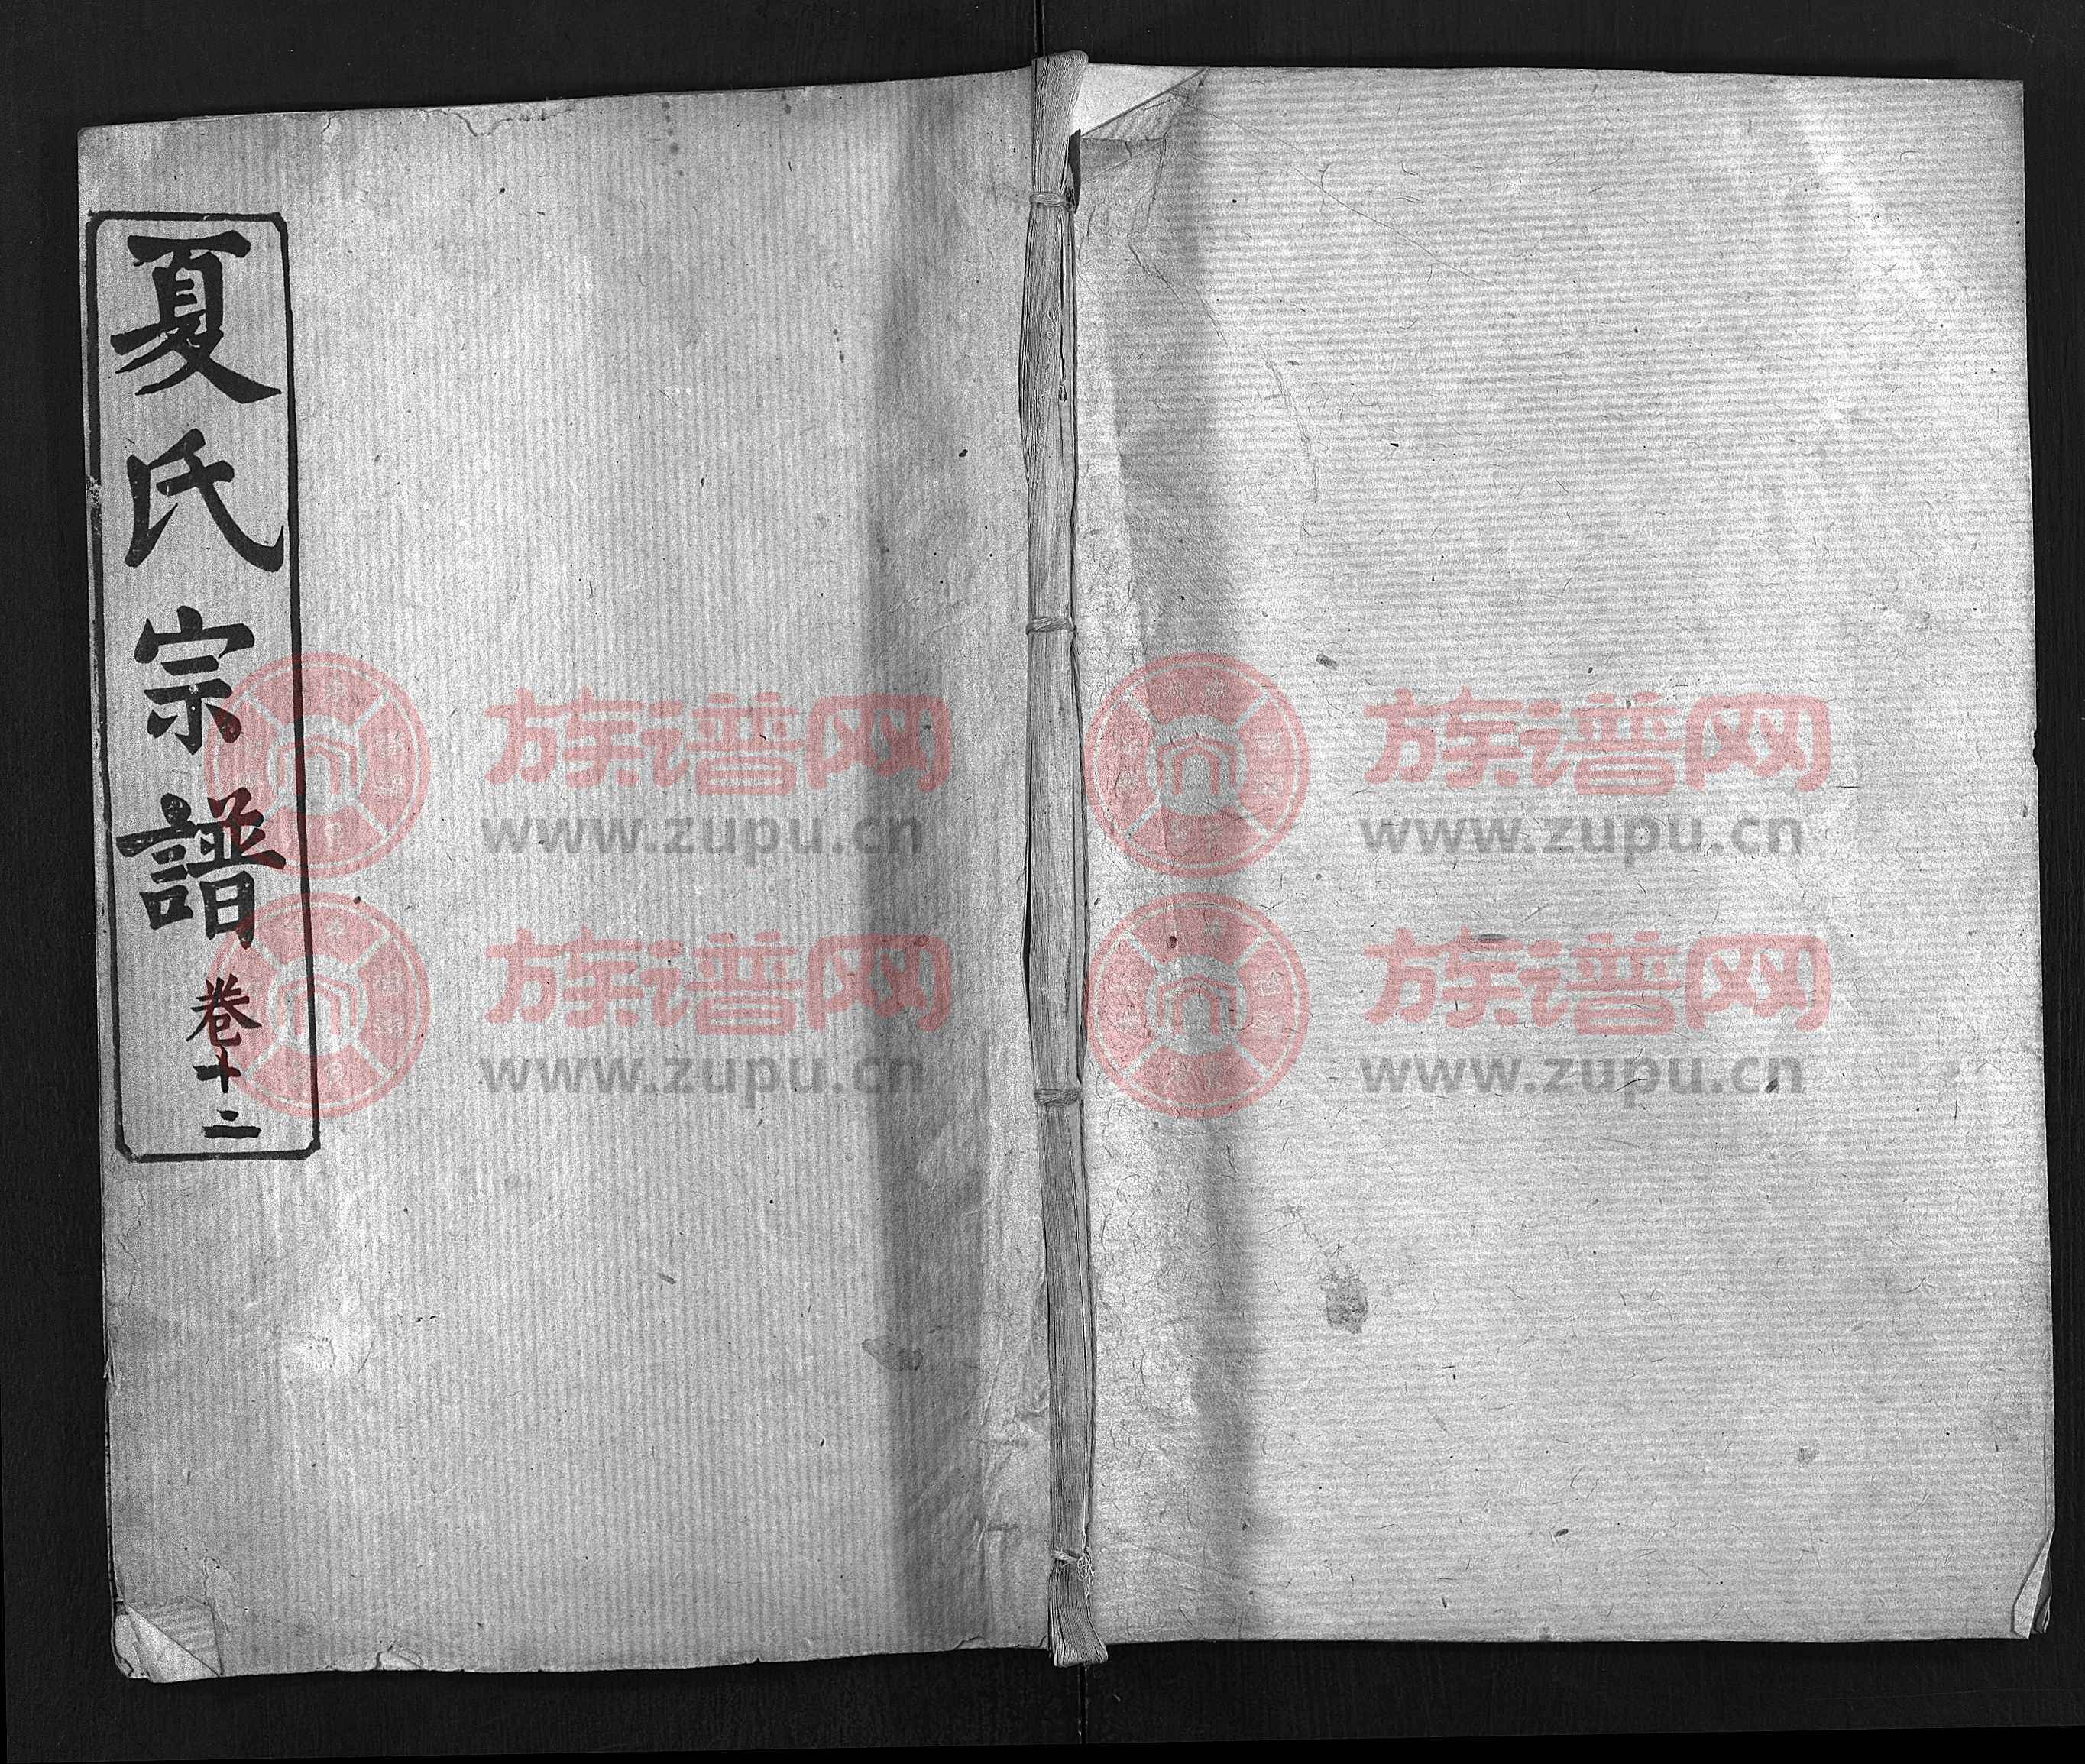 夏氏宗譜
卷十二
族谱网
www.zupu.cn
族谱网
www.zupu.cn
族谱网
www.zupu.cn
族谱网
www.zupu.cn